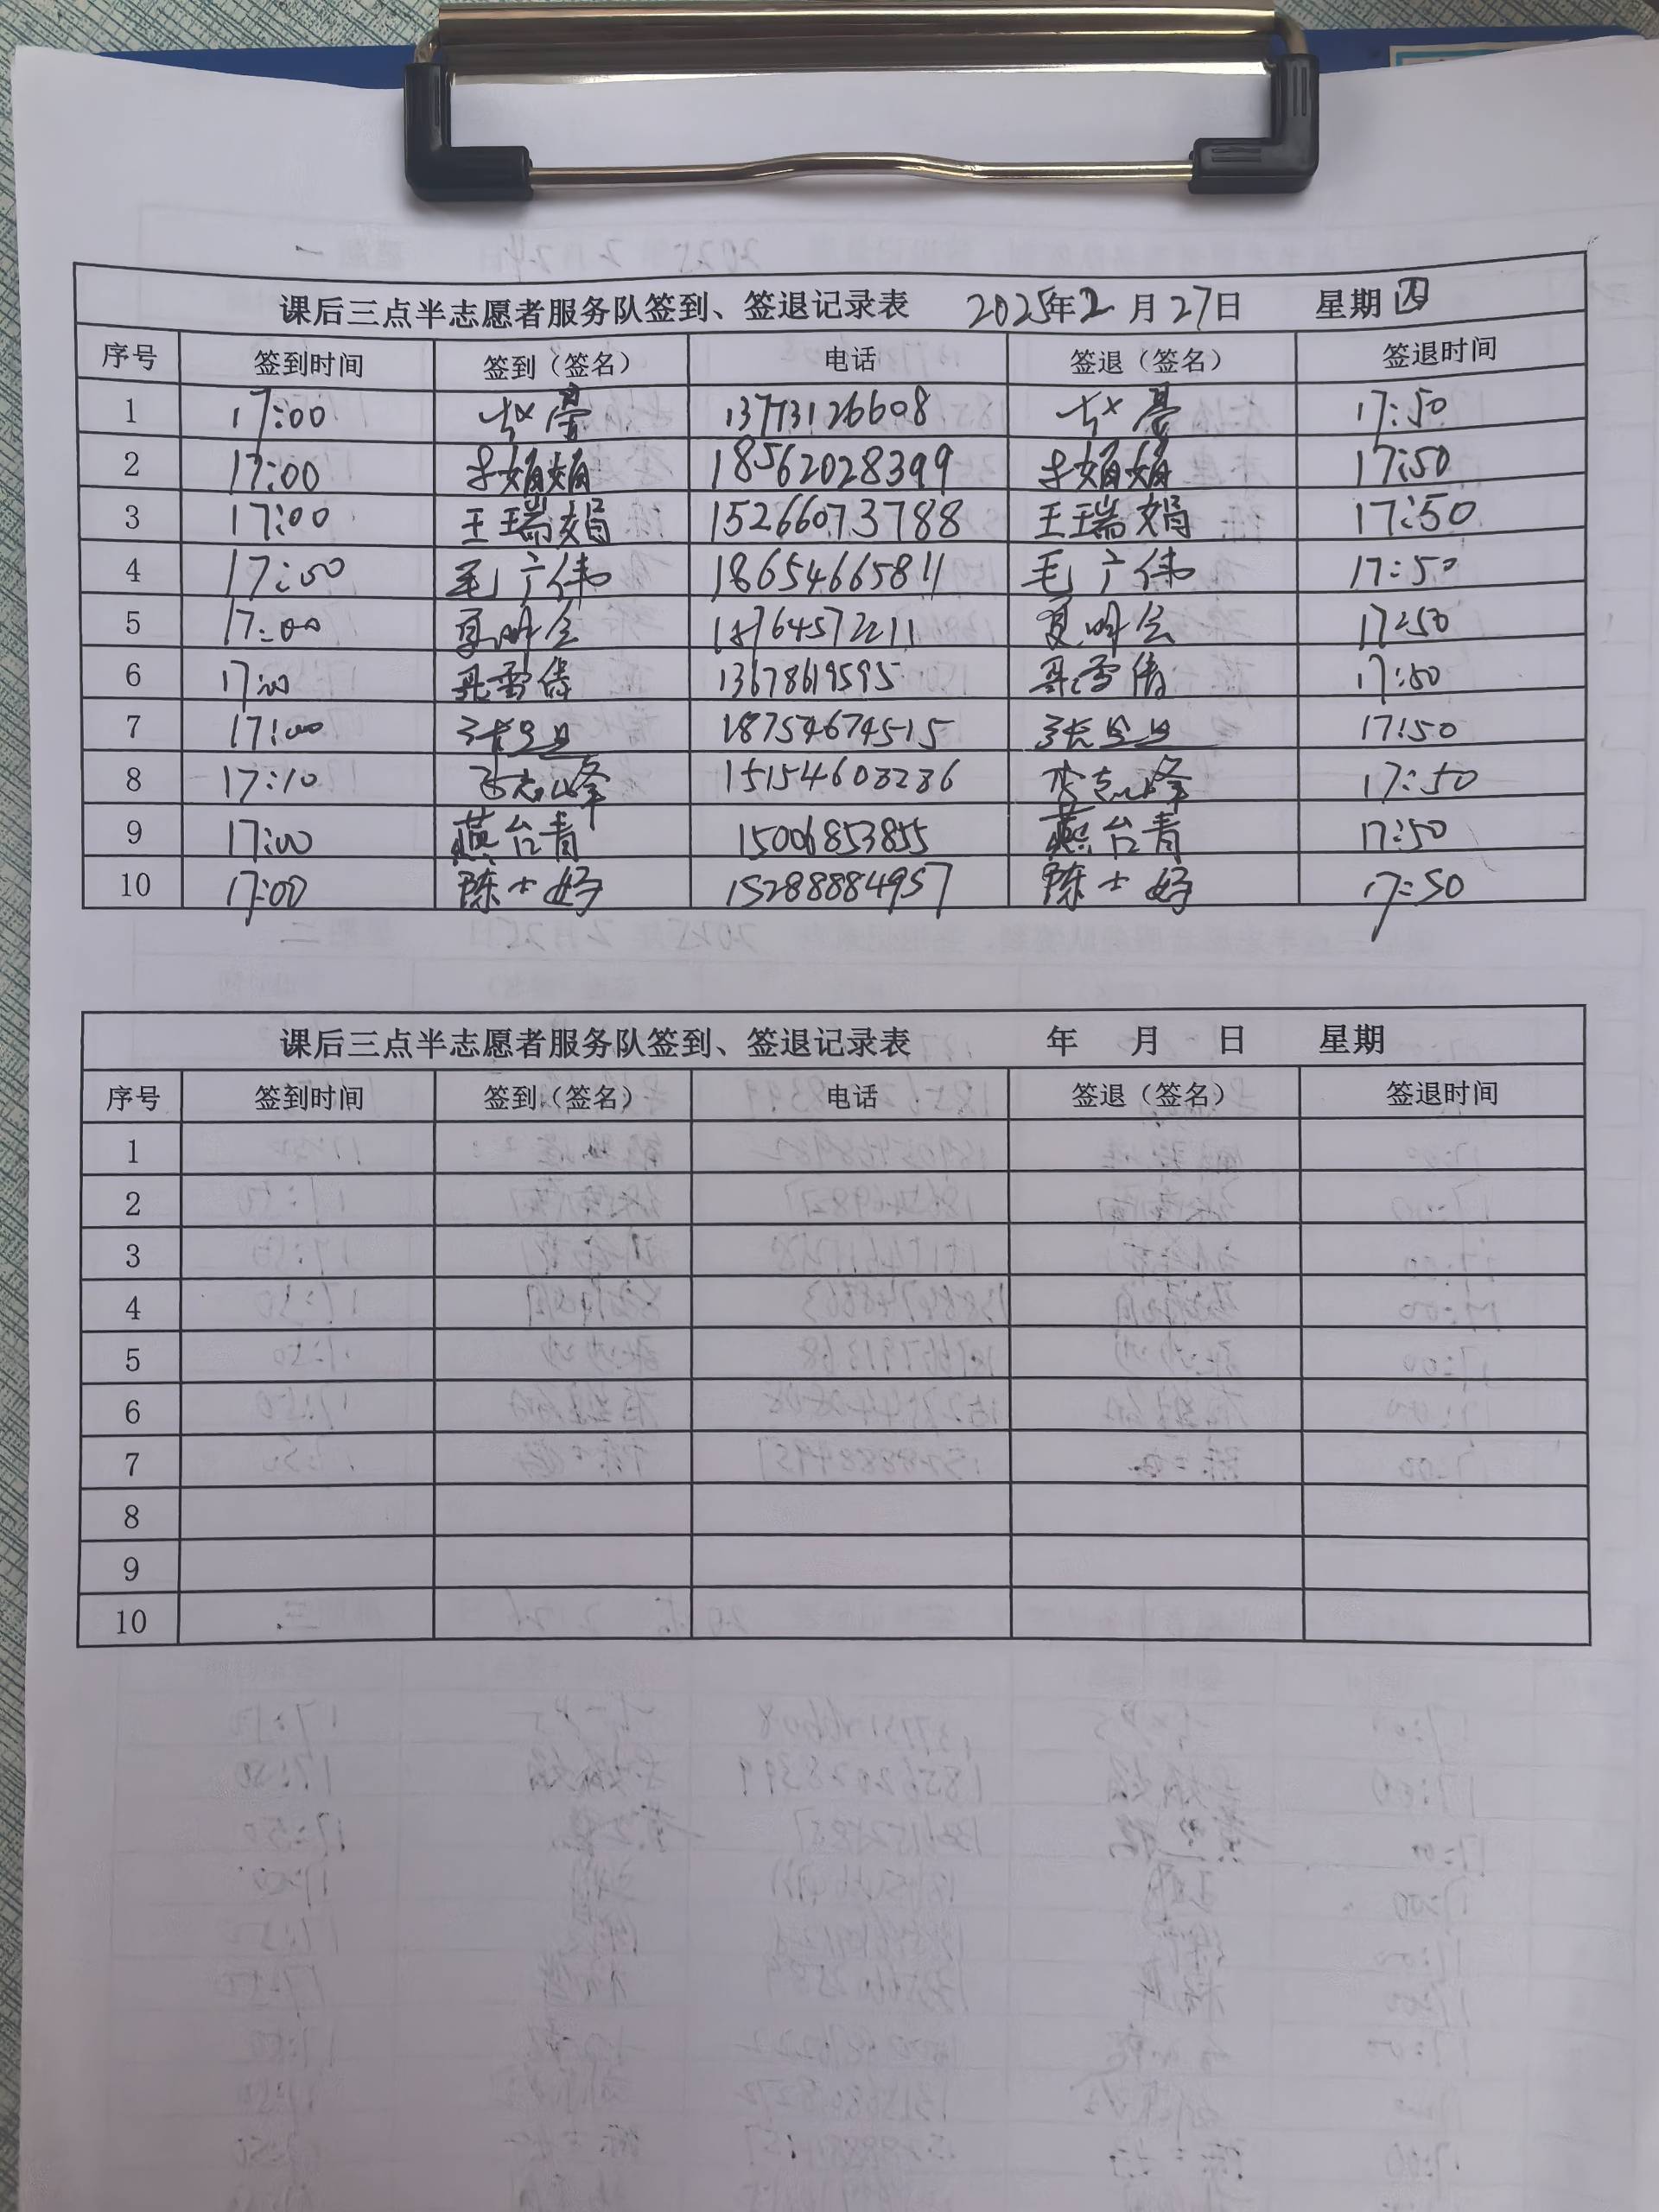 课后三点半志愿者服务队签到、签退记录表 2025年2月27日 星期四
序号 签到时间 签到（签名） 电话 签退（签名） 签退时间
1 17:00 赵亮 13773126608 赵亮 17:50
2 17:00 娟娟 18562028399 娟娟 17:50
3 17:00 王瑞娟 15266073788 王瑞娟 17:50
4 17:00 毛广伟 18654665811 毛广伟 17:50
5 17:00 夏 18764572211 夏 17:50
6 17:00 雪倩 13678619595 雪倩 17:50
7 17:00 张 18754674515 张 17:50
8 17:10 李志峰 15154608286 李志峰 17:50
9 17:00 燕台青 15006853855 燕台青 17:50
10 17:00 陈士好 15288884957 陈士好 17:50
课后三点半志愿者服务队签到、签退记录表 年 月 日 星期
序号 签到时间 签到（签名） 电话 签退（签名） 签退时间
1
2
3
4
5
6
7
8
9
10